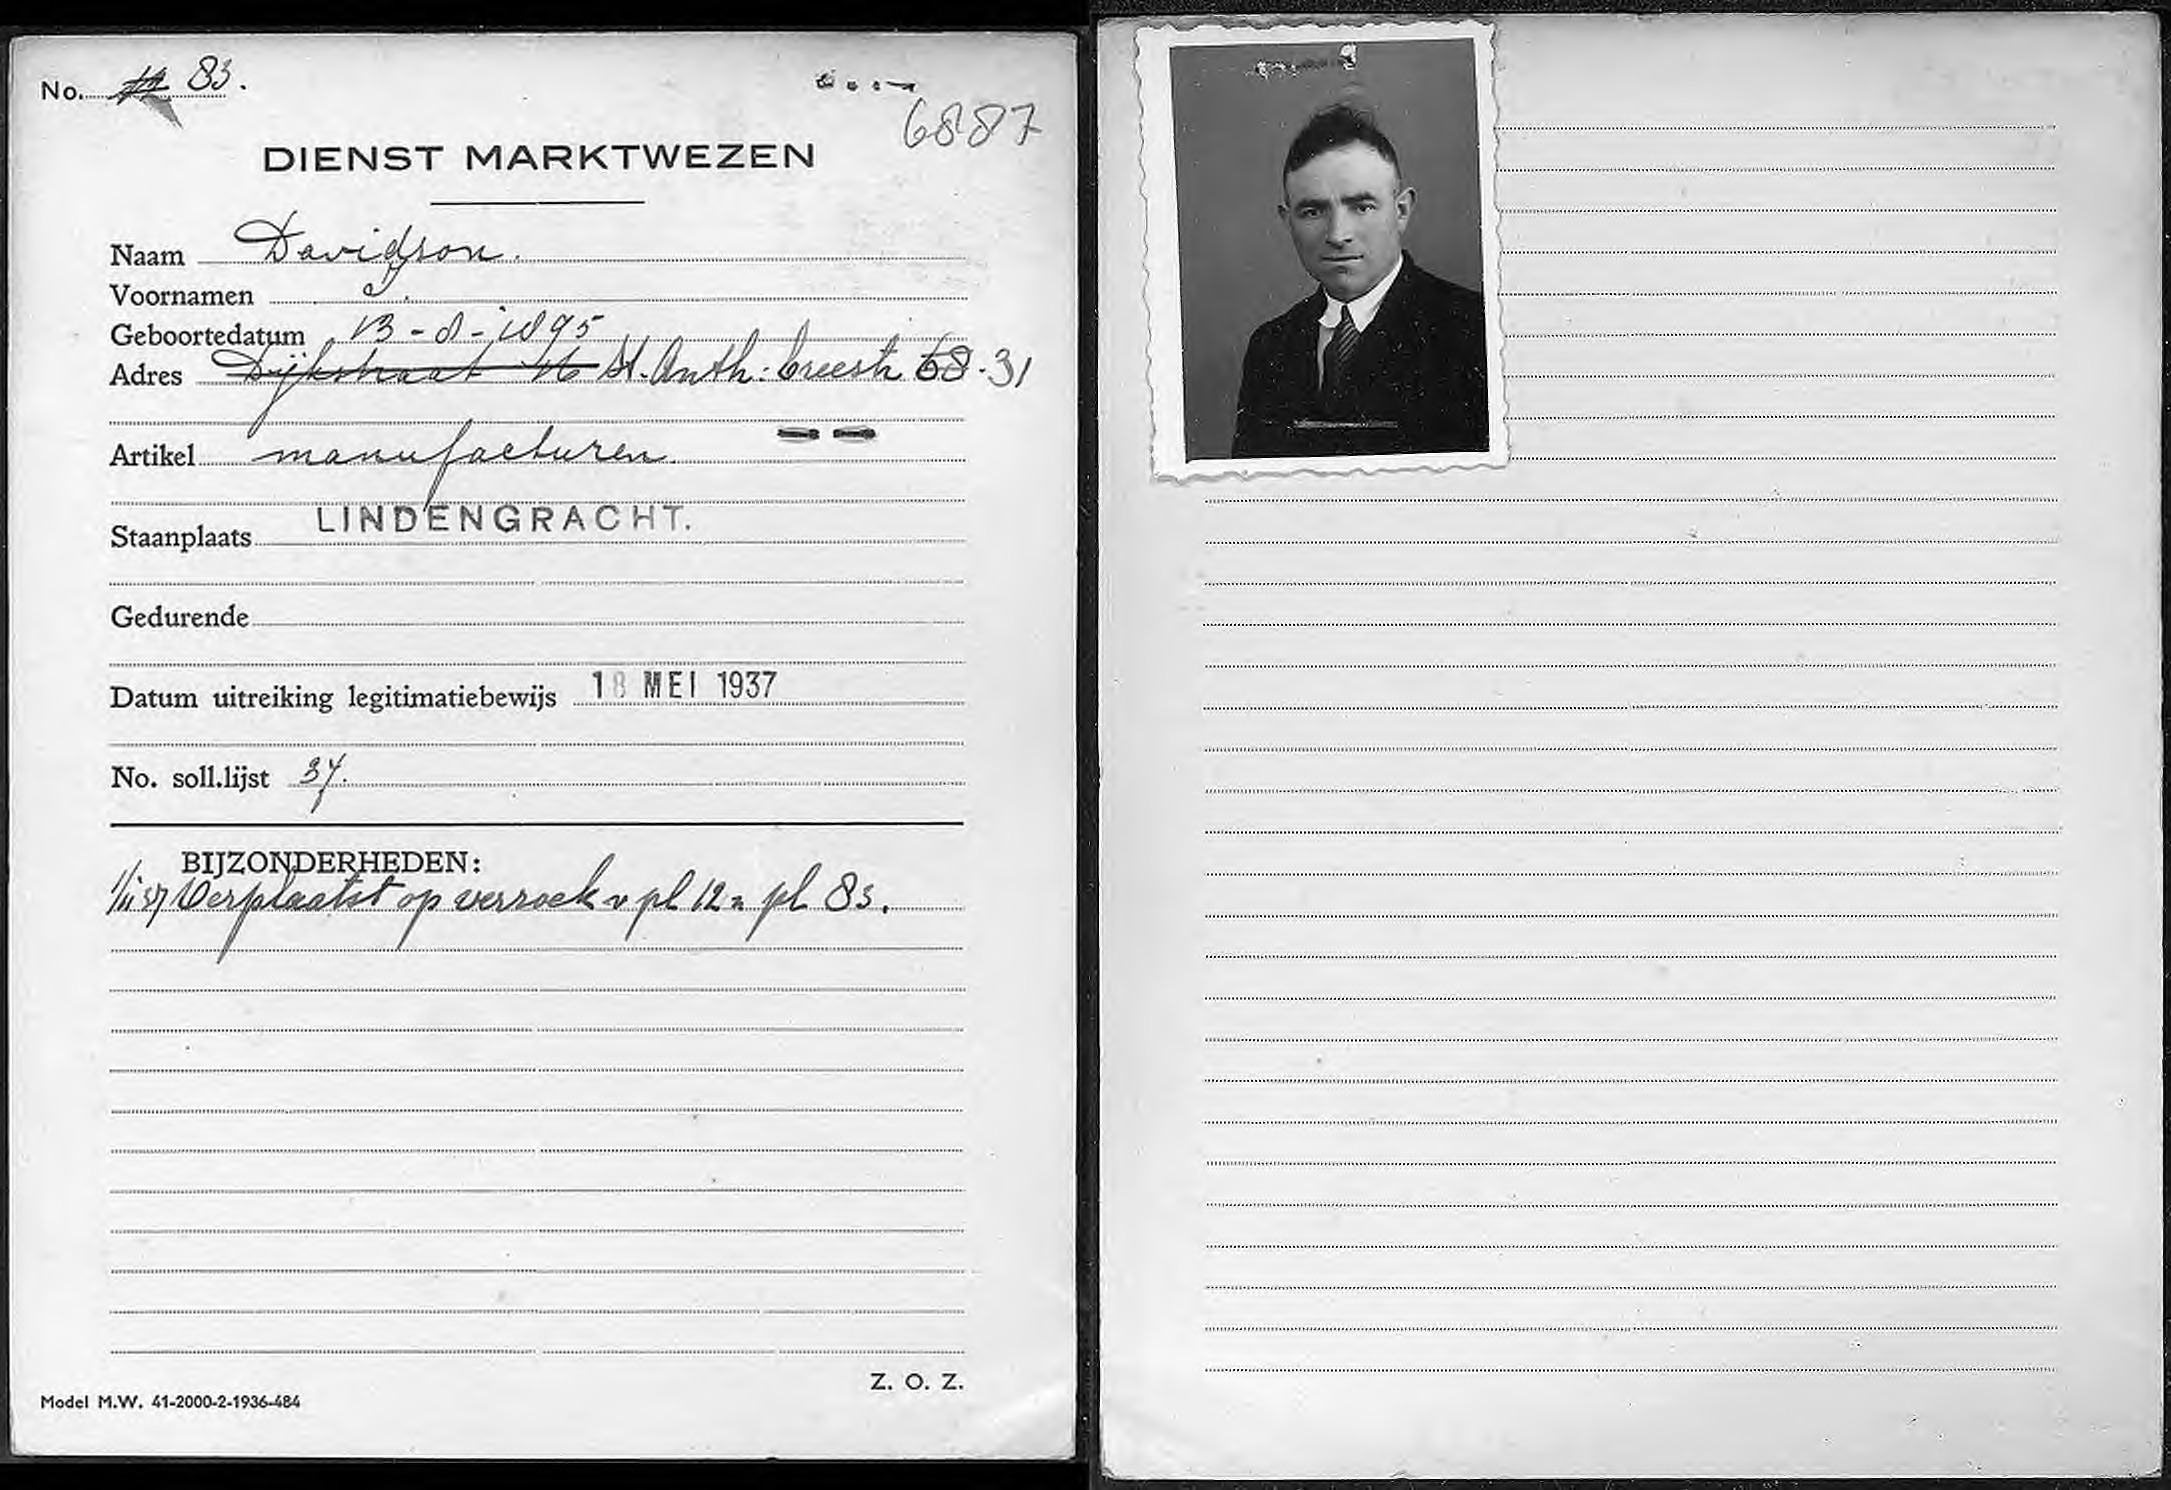 No. 12 83.
6887
DIENST MARKTWEZEN
Naam Davidson.
Voornamen J.
Geboortedatum 13-8-1895
Adres Dijkstraat 16 St. Anth: breestr 68-31
Artikel manufacturen.
Staanplaats LINDENGRACHT.
Gedurende
Datum uitreiking legitimatiebewijs 18 MEI 1937
No. soll.lijst 37.
BIJZONDERHEDEN:
1/11 37 Verplaatst op verzoek v pl 12 n pl 83.
Z. O. Z.
Model M.W. 41-2000-2-1936-484